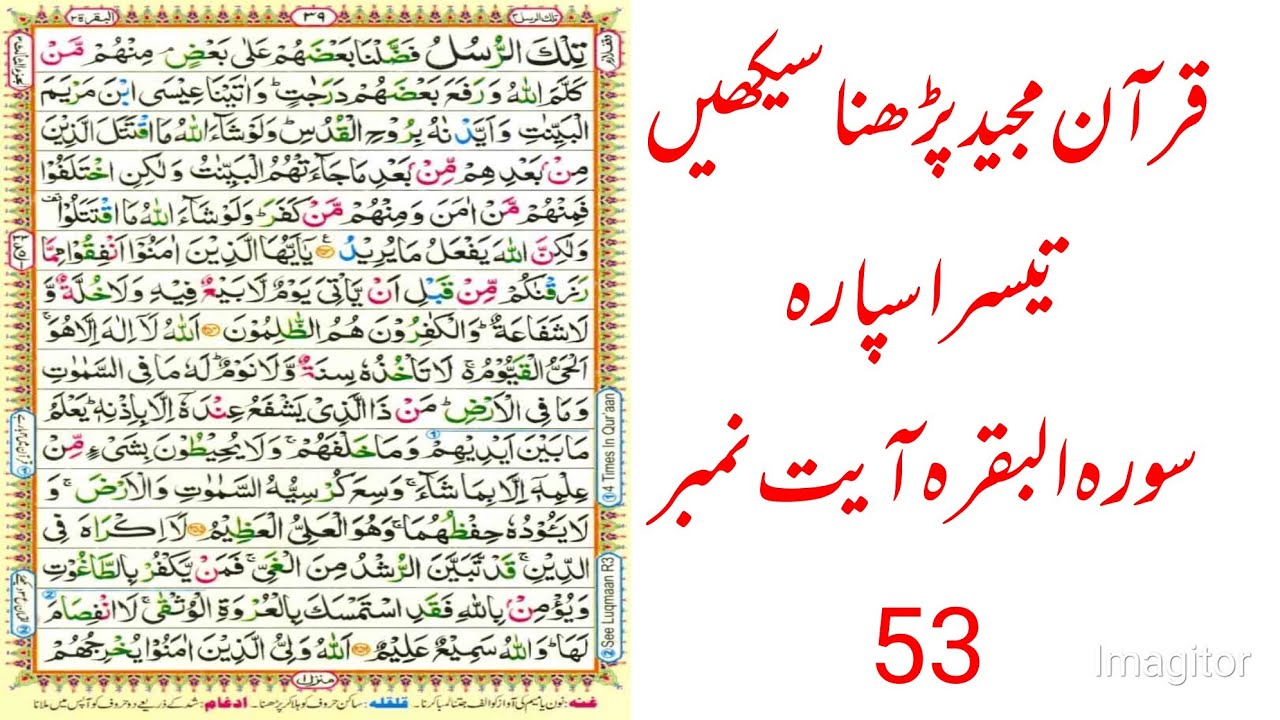 البقرة ٢
٣٩
تلك الرسل ٣
تِلْكَ الرُّسُلُ فَضَّلْنَا بَعْضَهُمْ عَلٰى بَعْضٍ ۘ مِنْهُمْ مَّنْ
كَلَّمَ اللّٰهُ وَرَفَعَ بَعْضَهُمْ دَرَجٰتٍ ؕ وَاٰتَيْنَا عِيْسَى ابْنَ مَرْيَمَ
الْبَيِّنٰتِ وَاَيَّدْنٰهُ بِرُوْحِ الْقُدُسِ ؕ وَلَوْ شَآءَ اللّٰهُ مَا اقْتَتَلَ الَّذِيْنَ
مِنْۢ بَعْدِهِمْ مِّنْۢ بَعْدِ مَا جَآءَتْهُمُ الْبَيِّنٰتُ وَلٰكِنِ اخْتَلَفُوْا
فَمِنْهُمْ مَّنْ اٰمَنَ وَمِنْهُمْ مَّنْ كَفَرَ ؕ وَلَوْ شَآءَ اللّٰهُ مَا اقْتَتَلُوْا
وَلٰكِنَّ اللّٰهَ يَفْعَلُ مَا يُرِيْدُ يٰۤاَيُّهَا الَّذِيْنَ اٰمَنُوْۤا اَنْفِقُوْا مِمَّا
رَزَقْنٰكُمْ مِّنْ قَبْلِ اَنْ يَّاْتِيَ يَوْمٌ لَّا بَيْعٌ فِيْهِ وَلَا خُلَّةٌ وَّ
لَا شَفَاعَةٌ ؕ وَالْكٰفِرُوْنَ هُمُ الظّٰلِمُوْنَ اَللّٰهُ لَاۤ اِلٰهَ اِلَّا هُوَ ۚ
اَلْحَيُّ الْقَيُّوْمُ ۚ لَا تَاْخُذُهٗ سِنَةٌ وَّلَا نَوْمٌ ؕ لَهٗ مَا فِي السَّمٰوٰتِ
وَمَا فِي الْاَرْضِ ؕ مَنْ ذَا الَّذِيْ يَشْفَعُ عِنْدَهٗۤ اِلَّا بِاِذْنِهٖ ؕ يَعْلَمُ
مَا بَيْنَ اَيْدِيْهِمْ وَمَا خَلْفَهُمْ ۚ وَلَا يُحِيْطُوْنَ بِشَيْءٍ مِّنْ
عِلْمِهٖۤ اِلَّا بِمَا شَآءَ ۚ وَسِعَ كُرْسِيُّهُ السَّمٰوٰتِ وَالْاَرْضَ ۚ وَ
لَا يَـُٔوْدُهٗ حِفْظُهُمَا ۚ وَهُوَ الْعَلِيُّ الْعَظِيْمُ لَاۤ اِكْرَاهَ فِي
الدِّيْنِ ۙ قَدْ تَّبَيَّنَ الرُّشْدُ مِنَ الْغَيِّ ۚ فَمَنْ يَّكْفُرْ بِالطَّاغُوْتِ
وَيُؤْمِنْۢ بِاللّٰهِ فَقَدِ اسْتَمْسَكَ بِالْعُرْوَةِ الْوُثْقٰى ۗ لَا انْفِصَامَ
لَهَا ؕ وَاللّٰهُ سَمِيْعٌ عَلِيْمٌ اَللّٰهُ وَلِيُّ الَّذِيْنَ اٰمَنُوْا يُخْرِجُهُمْ
منزل ١
غنه: نون یا میم کی آواز کو الف جتنا لمبا کرنا۔ قلقله: ساکن حروف کو ہلا کر پڑھنا۔ ادغام: شد کے ذریعے دو حروف کو آپس میں ملانا
① 4 Times In Qur'aan
② See Luqmaan R3
قرآن مجید پڑھنا سیکھیں
تیسرا سپارہ
سورہ البقرہ آیت نمبر
53
Imagitor